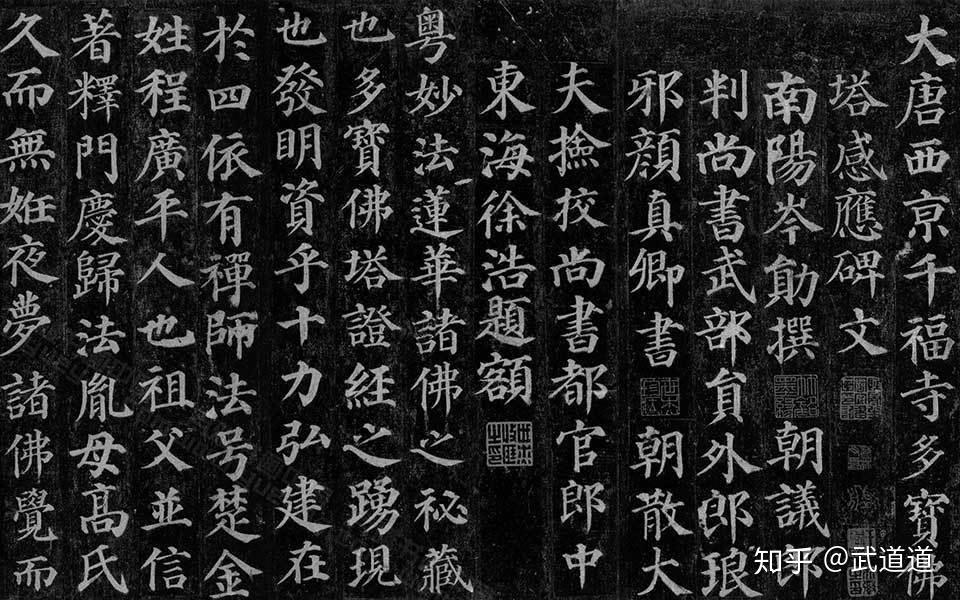 大唐西亰千福寺多寶佛
塔感應碑文
南陽岑勛撰 朝議郎
判尚書武部貟外郎琅
邪顏真卿書 朝散大
夫撿挍尚書都官郎中
東海徐浩題額
粵妙法蓮華諸佛之祕藏
也多寶佛塔證經之踴現
也發明資乎十力弘建在
於四依有禪師法号楚金
姓程廣平人也祖父並信
著釋門慶歸法胤母高氏
久而無姙夜夢諸佛覺而
知乎 @武道道